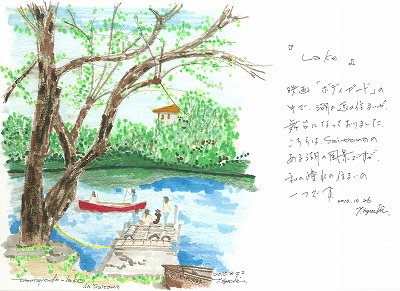 『 Lake 』
映画「ボディガード」の
中で、湖の近の住まいが、
舞台になっておりました。
こちらは、Saitamaの
ある湖の風景ですね。
私の憧れの住まいの
一つです。
2010.10.26
in Saitama